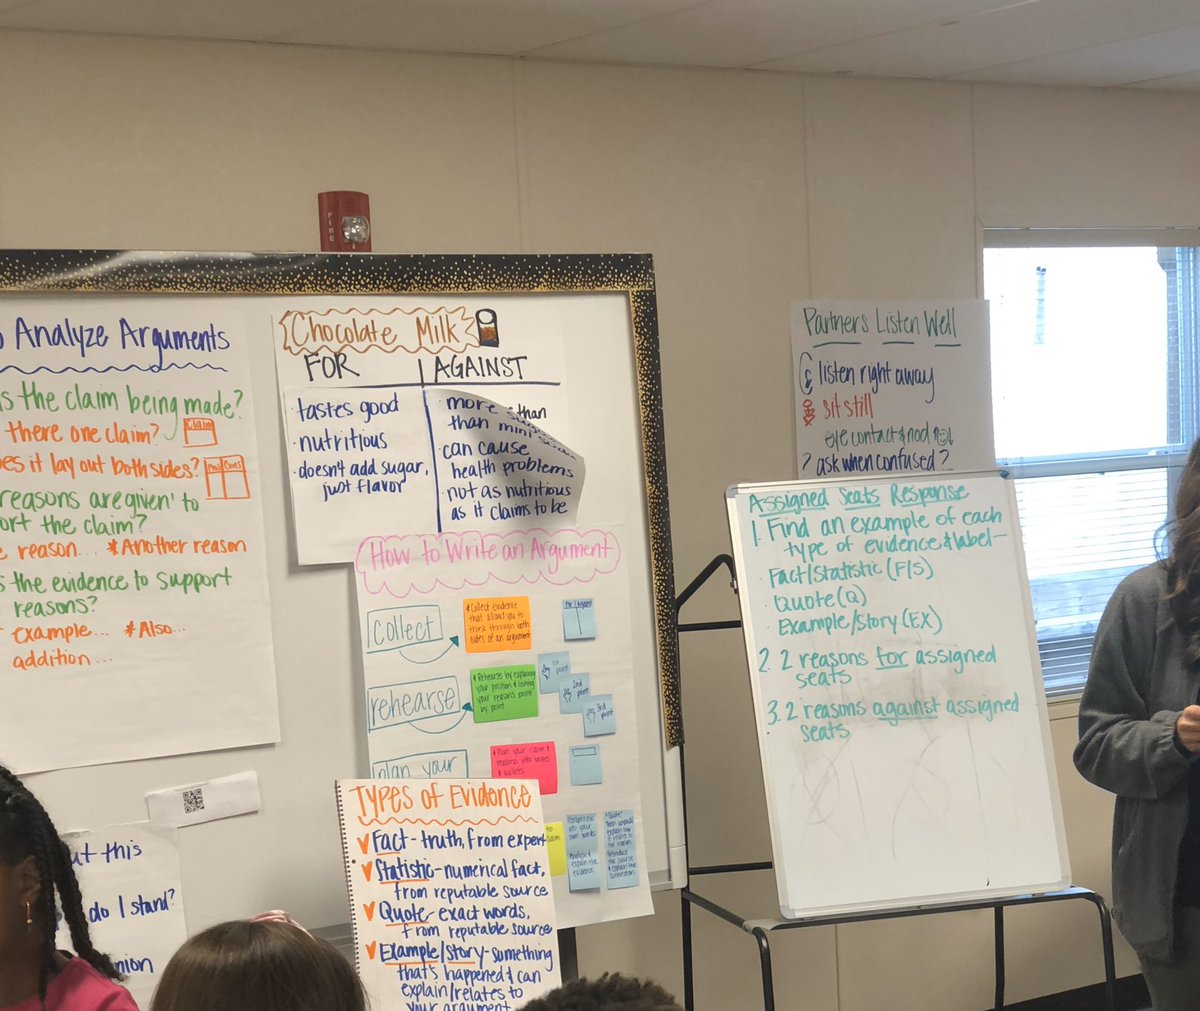 FIRE
Analyze Arguments
the claim being made?
there one claim? Claim
it lay out both sides? Pros Cons
reasons are given to
the claim?
reason... *Another reason
the evidence to support
reasons?
example... *Also...
addition...
Chocolate Milk
FOR
AGAINST
· tastes good
· nutritious
· doesn't add sugar,
just flavor
· more
than
than
· can cause
health problems
· not as nutritious
as it claims to be
How to Write an Argument
collect
* Collect evidence
that allows you to
think through both
sides of an argument
rehearse
* Rehearse by explaining
your position & listing
your reasons point
by point
1st
point
2nd
point
3rd
point
plan your
* Plan your claim &
reasons into boxes
& bullets
into your
own words
explain the
evidence
Types of Evidence
Fact - truth, from expert
Statistic - numerical fact,
from reputable source
Quote - exact words,
from reputable source
Example/Story - something
that's happened & can
explain/relates to
your argument
this
do I stand?
Partners Listen Well
listen right away
sit still
eye contact & nod
? ask when confused?
Assigned Seats Response
1. Find an example of each
type of evidence & label -
· Fact/Statistic (F/S)
· Quote (Q)
· Example/Story (EX)
2. 2 reasons for assigned
seats
3. 2 reasons against assigned
seats